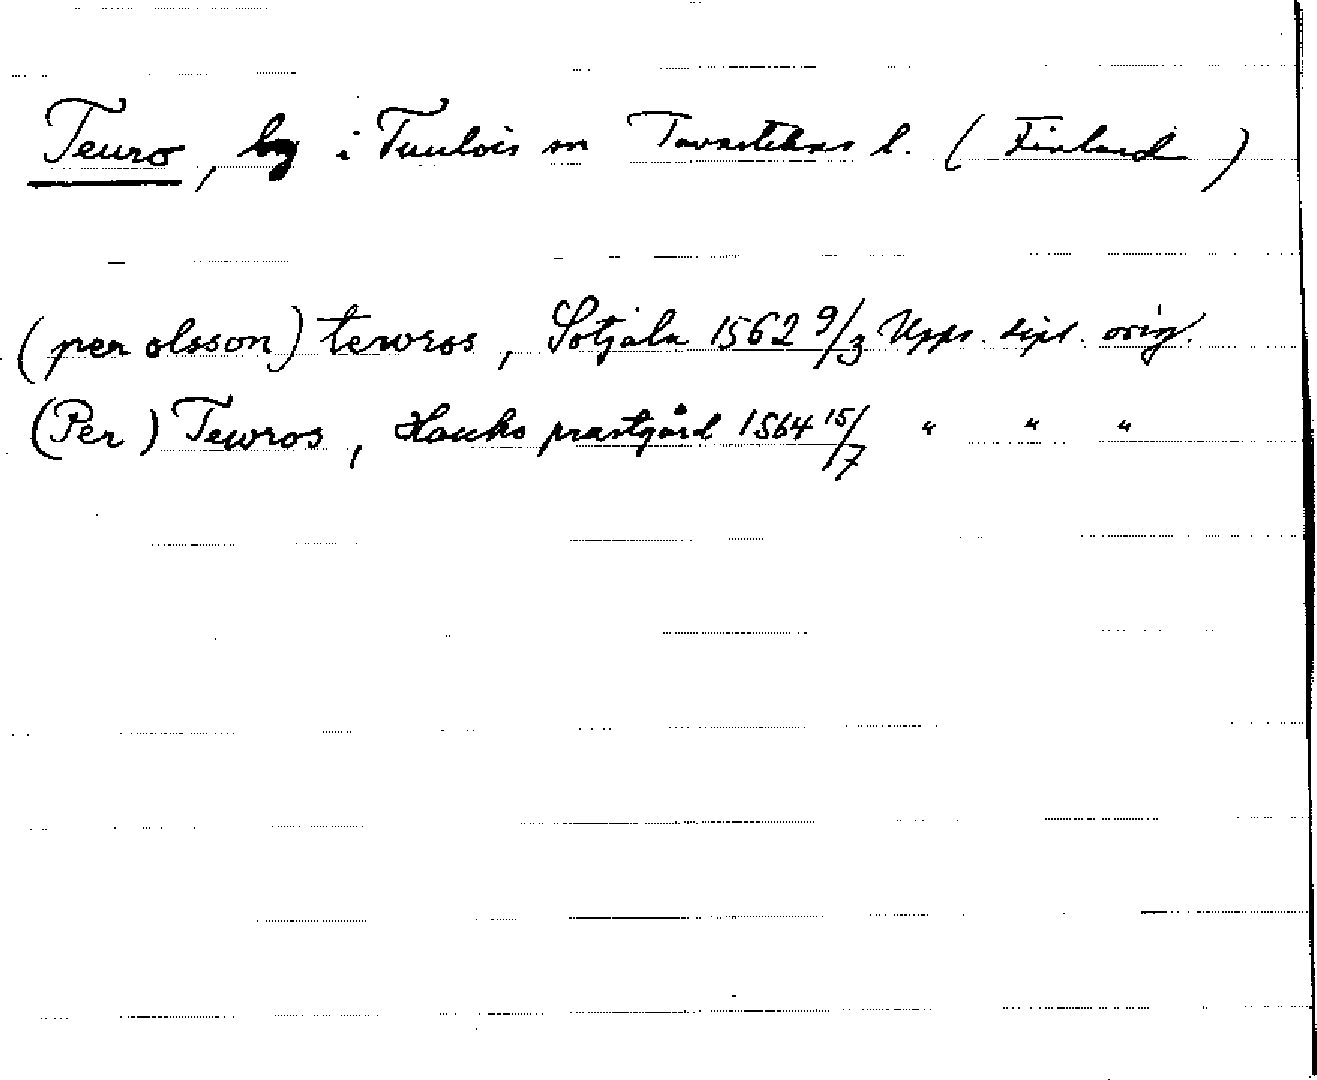 Teuro, by i Tuulois sn Tavastehus l. (Finland)
(per olsson) tewros, Sotjala 1562 9/3 Upps. dipl. orig.
(Per) Tewros, Hauho prästgård 1564 15/7 " " "